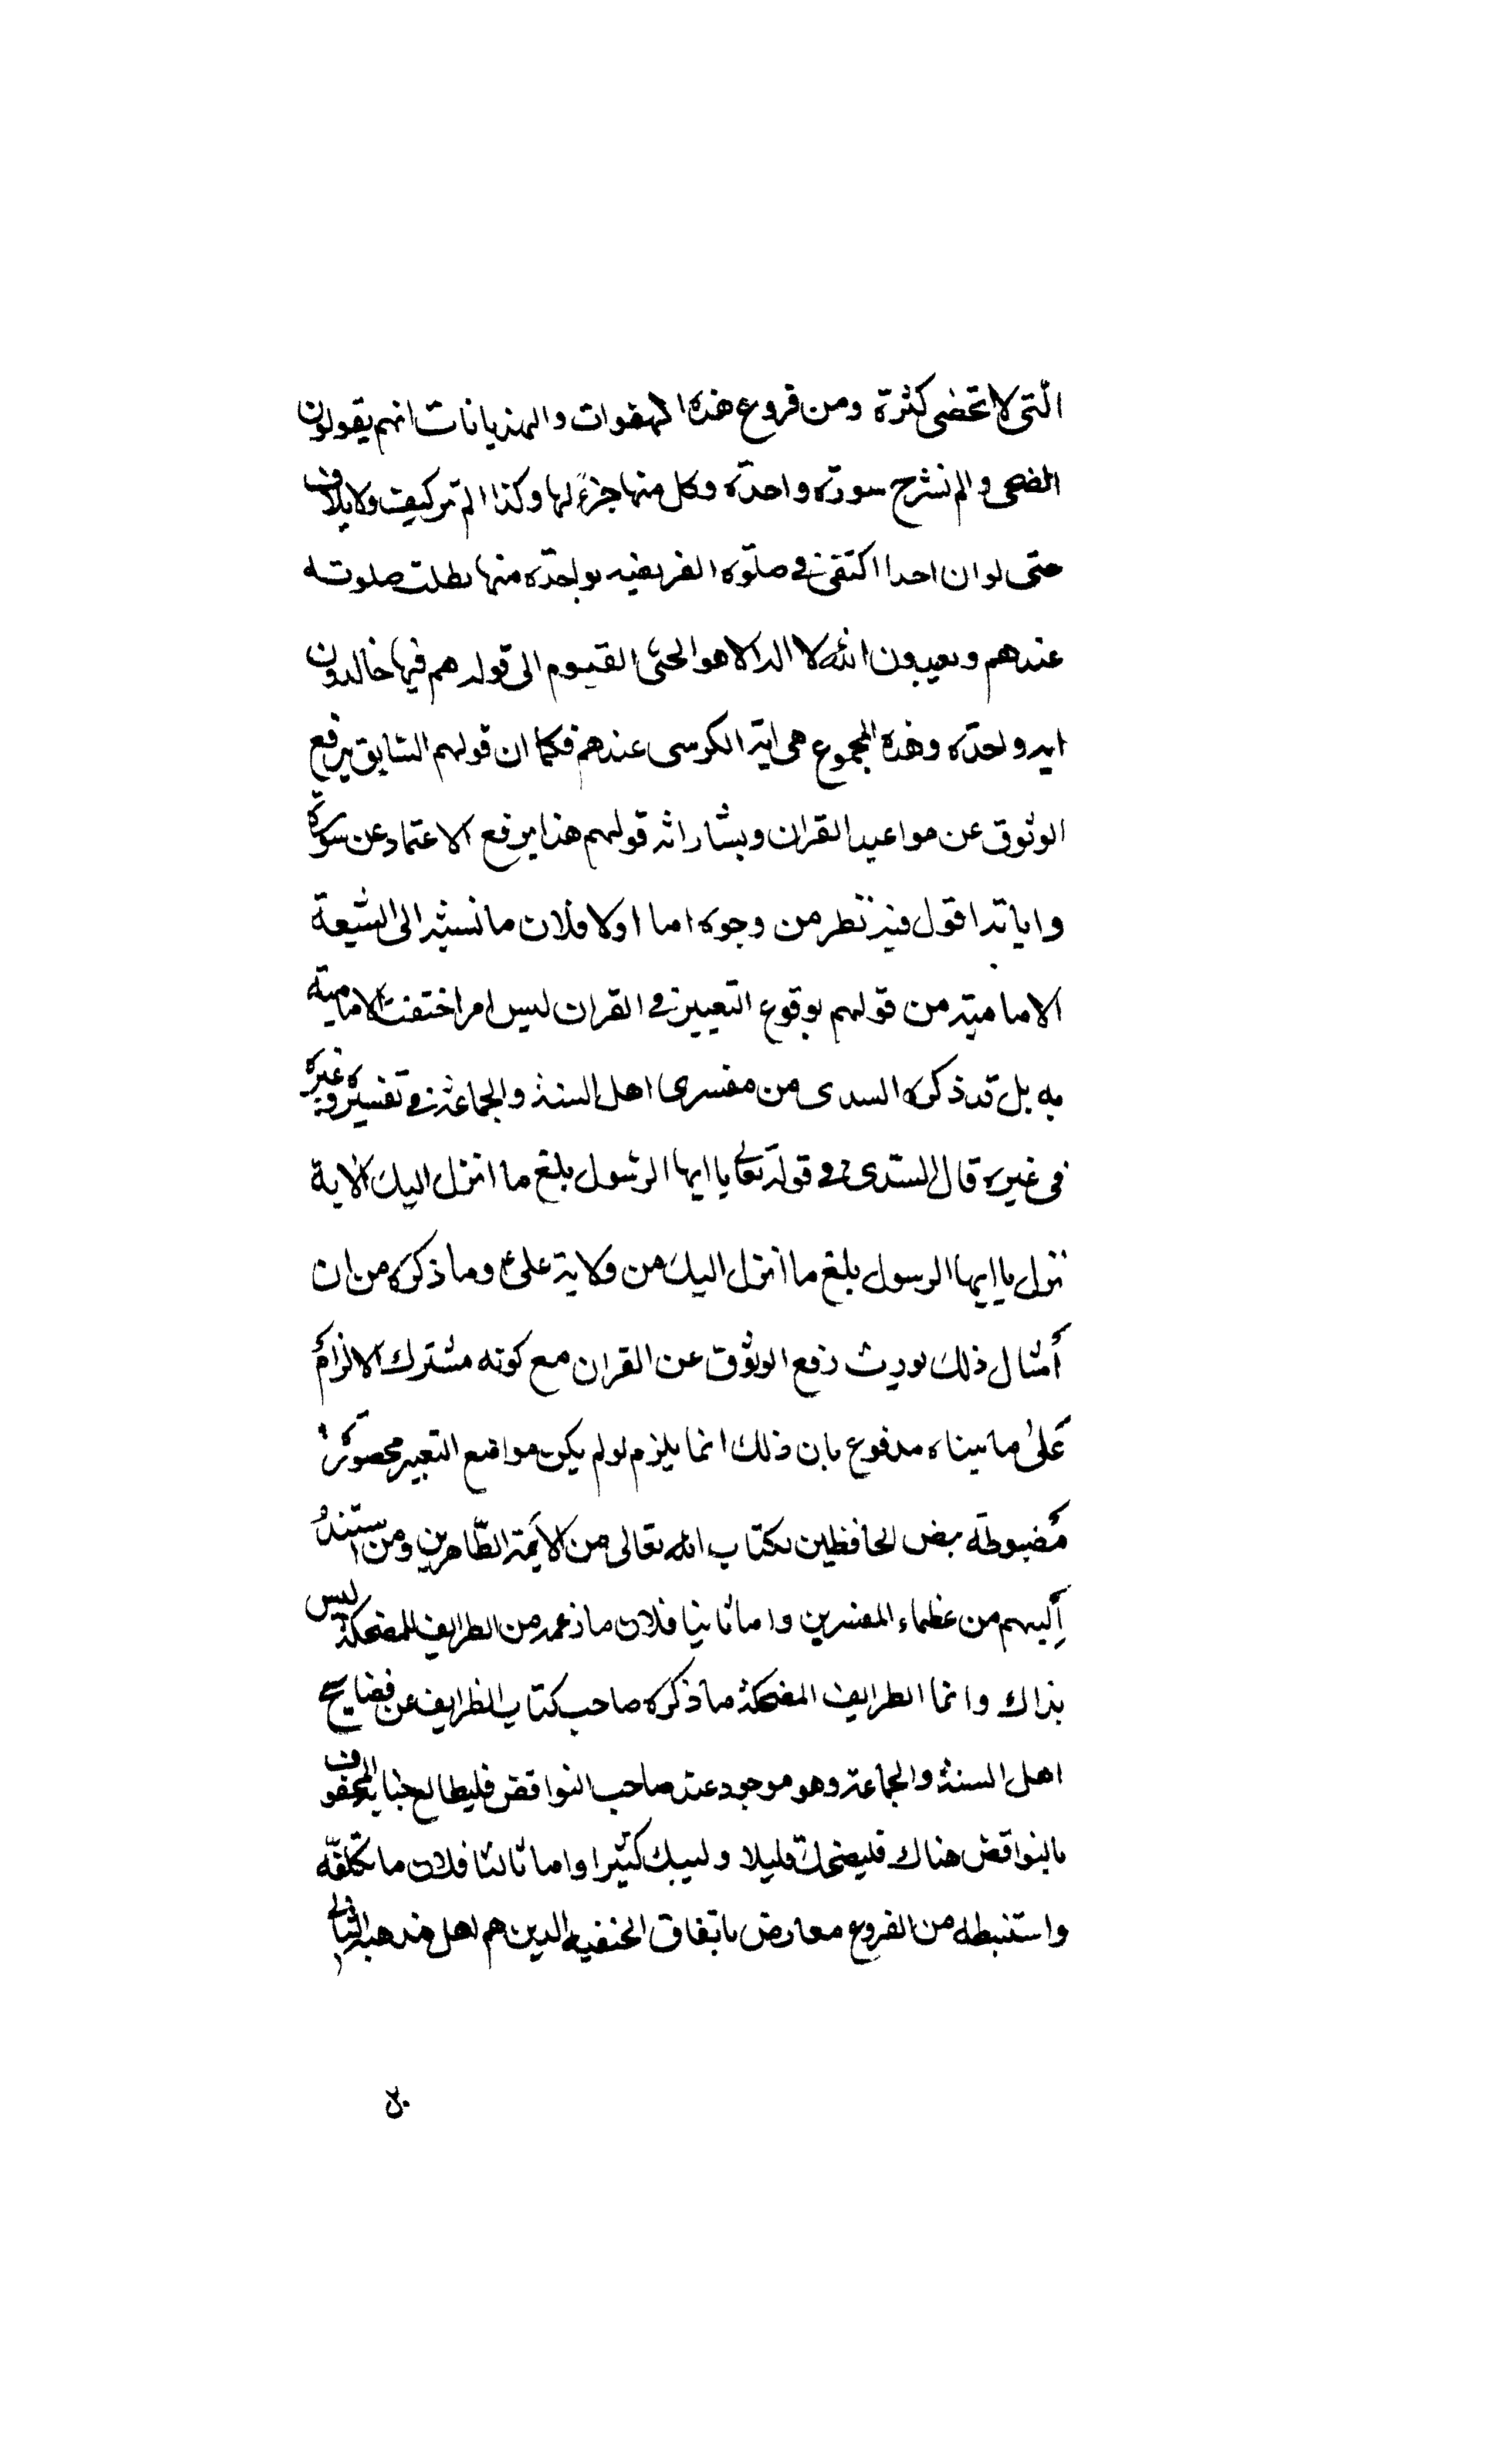 التى لا تحصى كثرة ومن فروع هذه الهفوات والهذيانات انهم يقولون
الضحى والم نشرح سورة واحدة وكل منها جزء لها وكذا الم تر كيف ولايلاف
حتى لو ان احدا اكتفى فى صلوة الفريضه بواحدة منها بطلت صلوته
عندهم ويعيبون الله لا اله الا هو الحى القيوم الى قوله هم فيها خالدون
ايه واحدة وهذه المجموع هى اية الكرسى عندهم فكما ان قولهم السابق يرفع
الوثوق عن مواعيد القران وبشاراته قولهم هذا يرفع الاعتماد عن سوره
واياته اقول فيه نظر من وجوه اما اولا فلان ما نسبه الى الشيعة
الامامية من قولهم بوقوع التغيير فى القران ليس امرا ختفت الامامية
به بل قد ذكره السدى من مفسرى اهل السنة والجماعة فى تفسيره وغيره
فى غيره قال السدى فى قوله تعالى يا ايها الرسول بلغ ما انزل اليك الاية
نزل يا ايها الرسول بلغ ما انزل اليك من ولاية على ع وما ذكره من ان
أمثال ذلك يورث رفع الوثوق عن القران مع كونه مشترك الالزام
على ما بيناه مدفوع بان ذلك انما يلزم لو لم يكن مواضع التغيير محصورة
مضبوطه بض الحافظين لكتاب الله تعالى من الأيمة الطاهرين ومن استند
إليهم من عظماء المفسرين واما ثانيا فلان ما زعمه من الطرايف المضحكة ليس
بذاك وانما الطرايف المضحكة ما ذكره صاحب كتاب الطرايف عن فضايح
اهل السنة والجماعة وهو موجود عند صاحب النواقض فليطالع جنابه المحفوف
بالنواقض هناك فليضحك قليلا وليبك كثيرا واما ثالثا فلان ما تكلفه
واستنبطه من الفروع معارض باتفاق الحنفيه الدين هم اهل مذهبه الثانى